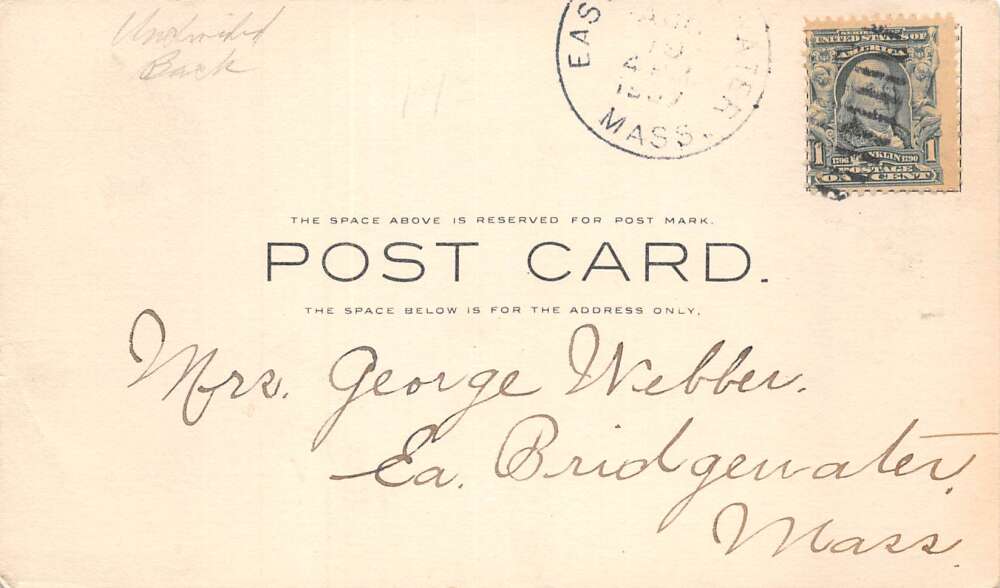 Undivided
Back
EAS ATER
19
4
MASS.
SERIES
UNITED STATES OF
AMERICA
1 1706 FRANKLIN 1790 1
POSTAGE
ONE CENT
THE SPACE ABOVE IS RESERVED FOR POST MARK.
POST CARD.
THE SPACE BELOW IS FOR THE ADDRESS ONLY.
Mrs. George Webber.
Ea. Bridgewater,
Mass.